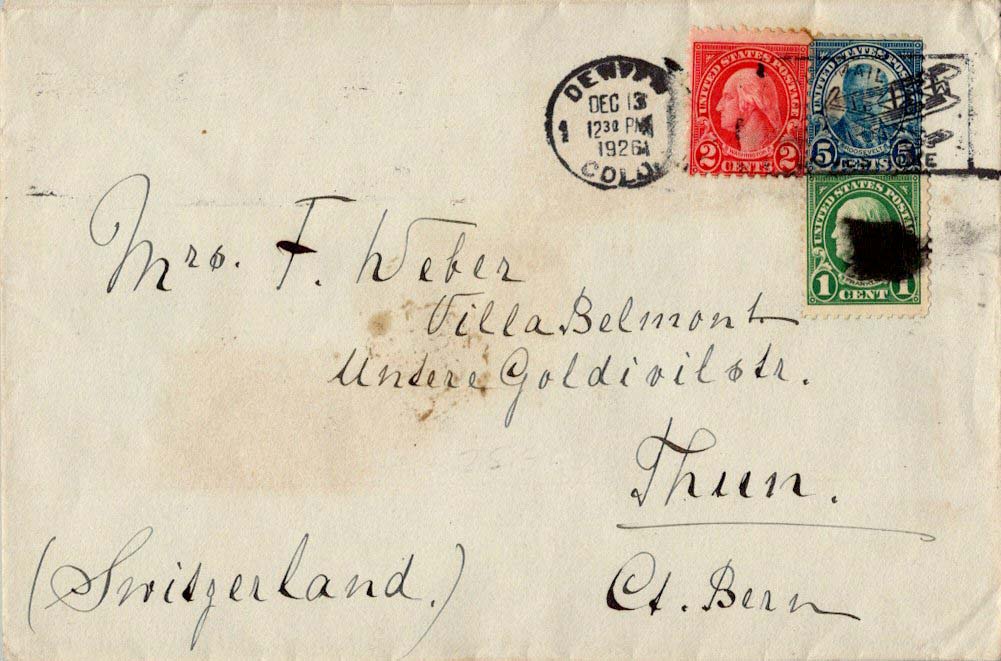 DENVER
DEC 13
1230 PM
1926
COLO.
1
UNITED STATES POSTAGE
WASHINGTON
2 CENTS 2
UNITED STATES POSTAGE
ROOSEVELT
5 CENTS 5
UNITED STATES POSTAGE
FRANKLIN
1 CENT 1
Mrs. F. Weber
Villa Belmont
Untere Goldivilstr.
Thun.
Ct. Bern
(Switzerland.)